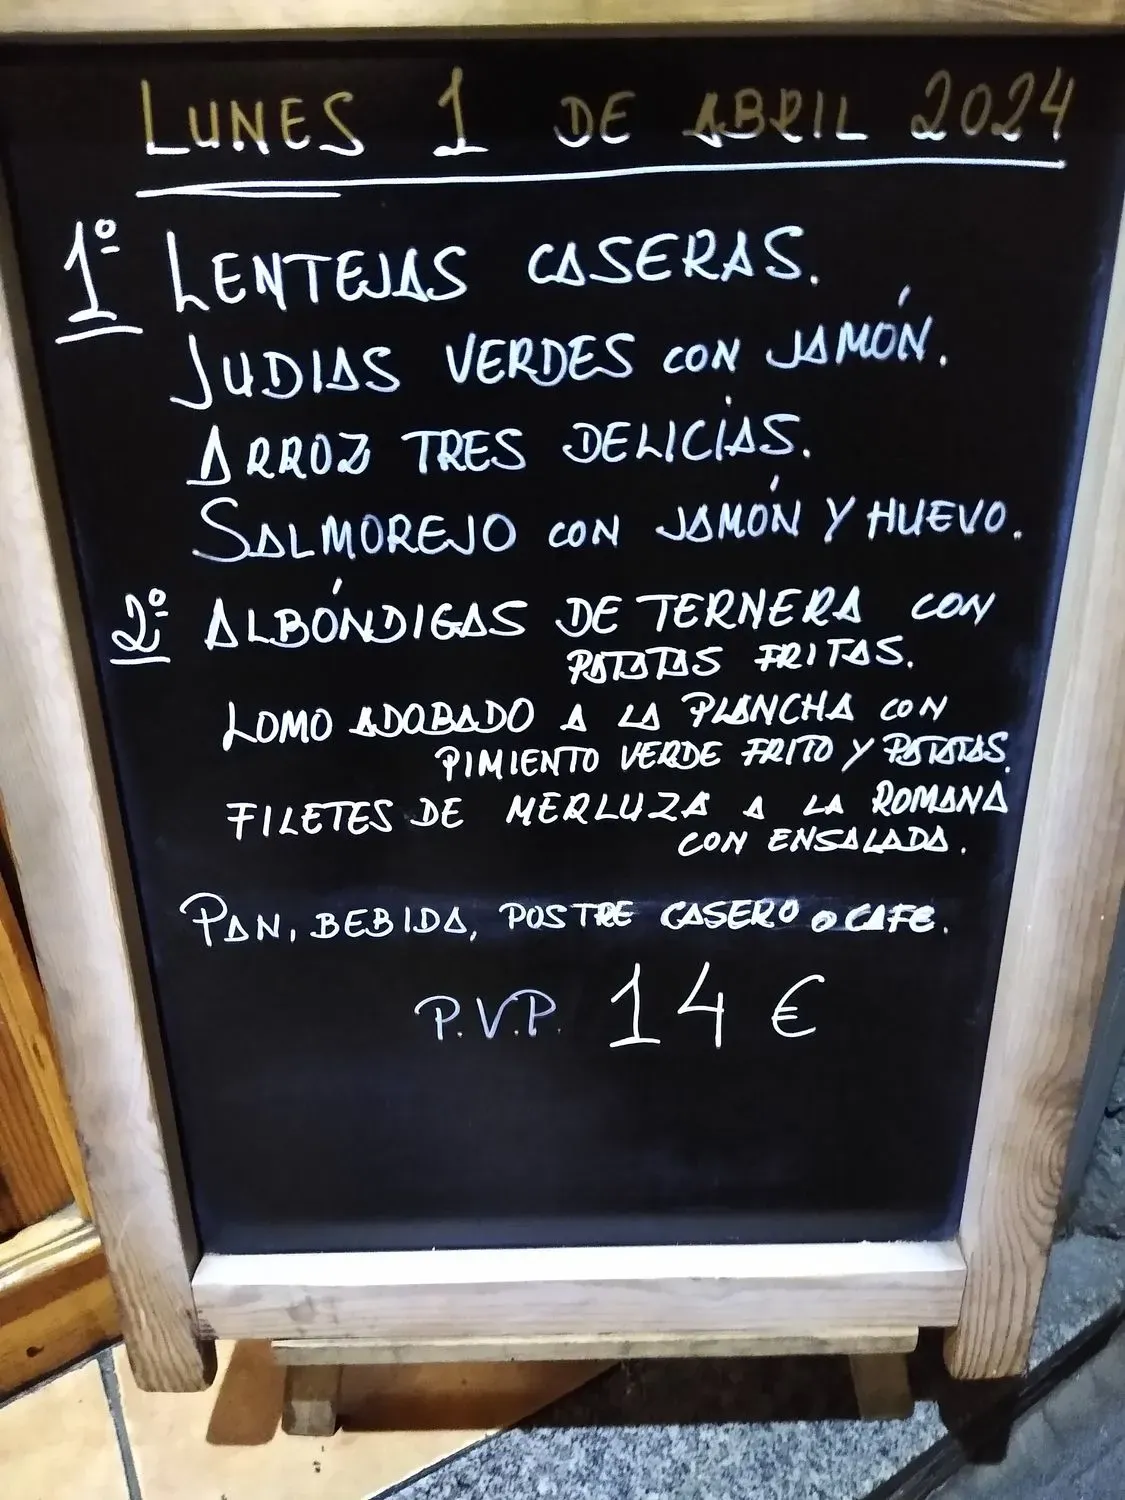 LUNES 1 DE ABRIL 2024
1º LENTEJAS CASERAS.
JUDIAS VERDES CON JAMÓN.
ARROZ TRES DELICIAS.
SALMOREJO CON JAMÓN Y HUEVO.
2º ALBÓNDIGAS DE TERNERA CON
PATATAS FRITAS.
LOMO ADOBADO A LA PLANCHA CON
PIMIENTO VERDE FRITO Y PATATAS.
FILETES DE MERLUZA A LA ROMANA
CON ENSALADA.
PAN, BEBIDA, POSTRE CASERO O CAFE.
P.V.P. 14 €